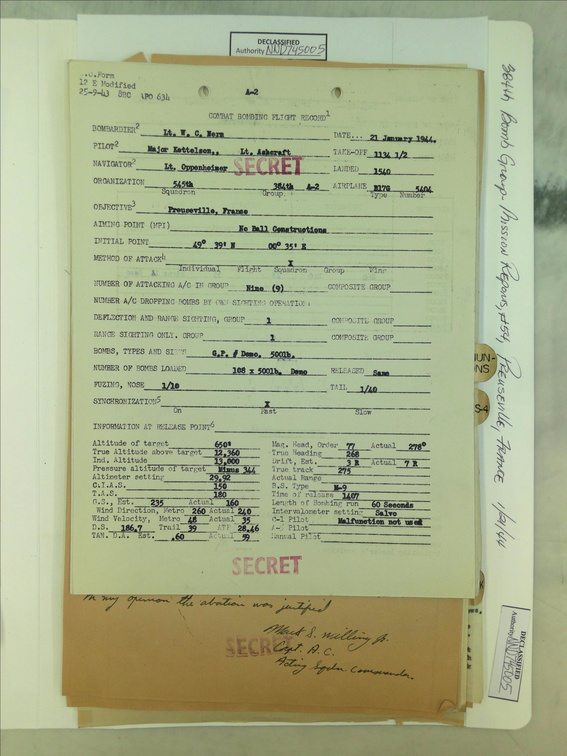 DECLASSIFIED
Authority NND745005
12 E Modified
25-9-43 BBC APO 634
A-2
COMBAT BOMBING FLIGHT RECORD1
BOMBARDIER2 Lt. W. C. Horn DATE... 21 January 1944.
PILOT2 Major Kettelson,, Lt. Ashcraft TAKE-OFF 1134 1/2
NAVIGATOR2 Lt. Oppenheimer LANDED 1540
SECRET
ORGANIZATION 545th 384th A-2 AIRPLANE B17G 5404
Squadron Group Type Number
OBJECTIVE3 Preuseville, Franse
AIMING POINT (MPI) No Ball Constructions
INITIAL POINT 49° 39' N 00° 35' E
METHOD OF ATTACK4 X
Individual Flight Squadron Group Wing
NUMBER OF ATTACKING A/C IN GROUP Nine (9) COMPOSITE GROUP
NUMBER A/C DROPPING BOMBS BY OWN SIGHTING OPERATION:
DEFLECTION AND RANGE SIGHTING, GROUP 1 COMPOSITE GROUP
RANGE SIGHTING ONLY. GROUP 1 COMPOSITE GROUP
BOMBS, TYPES AND SIZES G.P. # Demo, 500lb.
NUMBER OF BOMBS LOADED 108 x 500lb. Demo RELEASED Same
FUZING, NOSE 1/10 TAIL 1/40
SYNCHRONIZATION5 X
On Fast Slow
INFORMATION AT RELEASE POINT6
Altitude of target 650' Mag. Head, Order 77 Actual 278°
True Altitude above target 12,360 True Heading 268
Ind. Altitude 13,000 Drift, Est. 3 R Actual 7 R
Pressure altitude of target Minus 344 True track 275
Altimeter setting 29.92 Actual Range
C.I.A.S. 150 B.S. Type M-9
T.A.S. 180 Time of release 1407
G.S., Est. 235 Actual 160 Length of Bombing run 60 Seconds
Wind Direction, Metro 260 Actual 240 Intervalometer setting Salvo
Wind Velocity, Metro 48 Actual 35 C-1 Pilot Malfunction not used
D.S. 186.7 Trail 39 ATF 28.46 A-5 Pilot
TAN. D.A. Est. .60 Actual 59 Manual Pilot
SECRET
In my openion the abortion was justified
SECRET
Capt. A.C.
Acting Sqdn. Commander.
384th Bomb Group - Mission Reports, #54, Preuseville, France 1/21/44
DECLASSIFIED
Authority NND745005